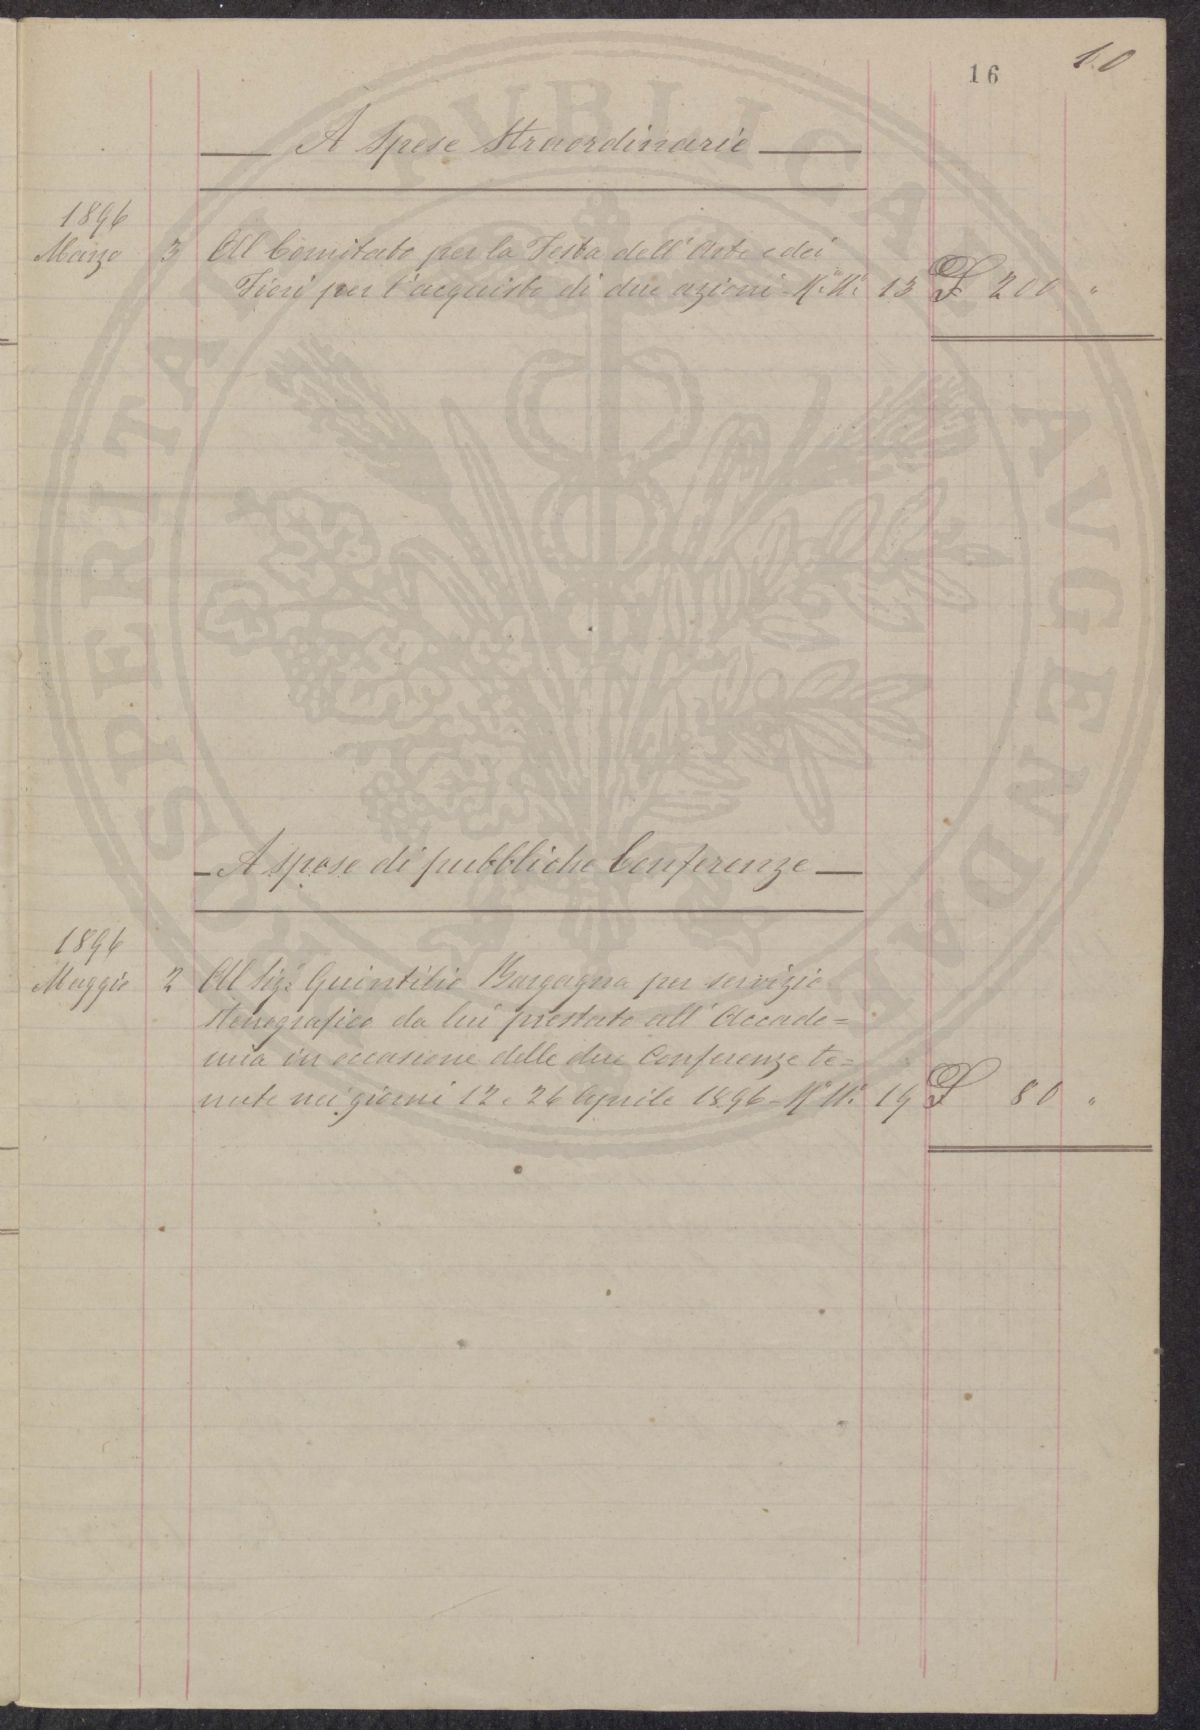 16 10
A Spese Straordinarie
1896
Marzo 3 Al Comitato per la Festa dell'Arte e dei
Fiori per l'acquisto di due azioni - Mto No 13 £ 200 "
A spese di pubbliche Conferenze
1896
Maggio 2 Al Sigr Quintilio Bargagna per servizio
stenografico da lui prestato all'Accade=
mia in occasione delle due Conferenze te=
nute nei giorni 12 e 26 Aprile 1896 - Mto No 19 £ 80 "
PVBLICA
PROSPERITATI
AVGENDAE